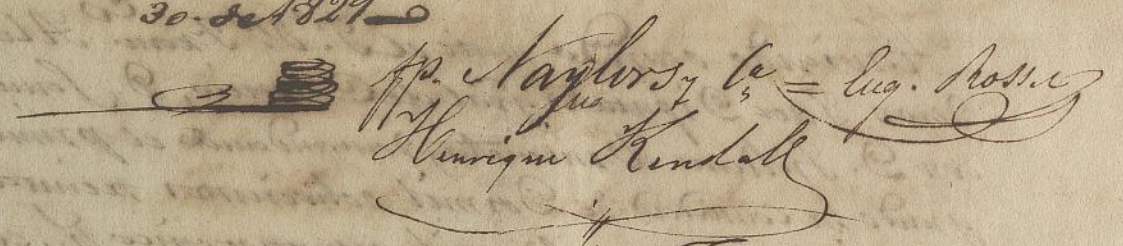 30. de 1821
pp. Naylors y Ca = Eug. Rosse
Henrique Kendall